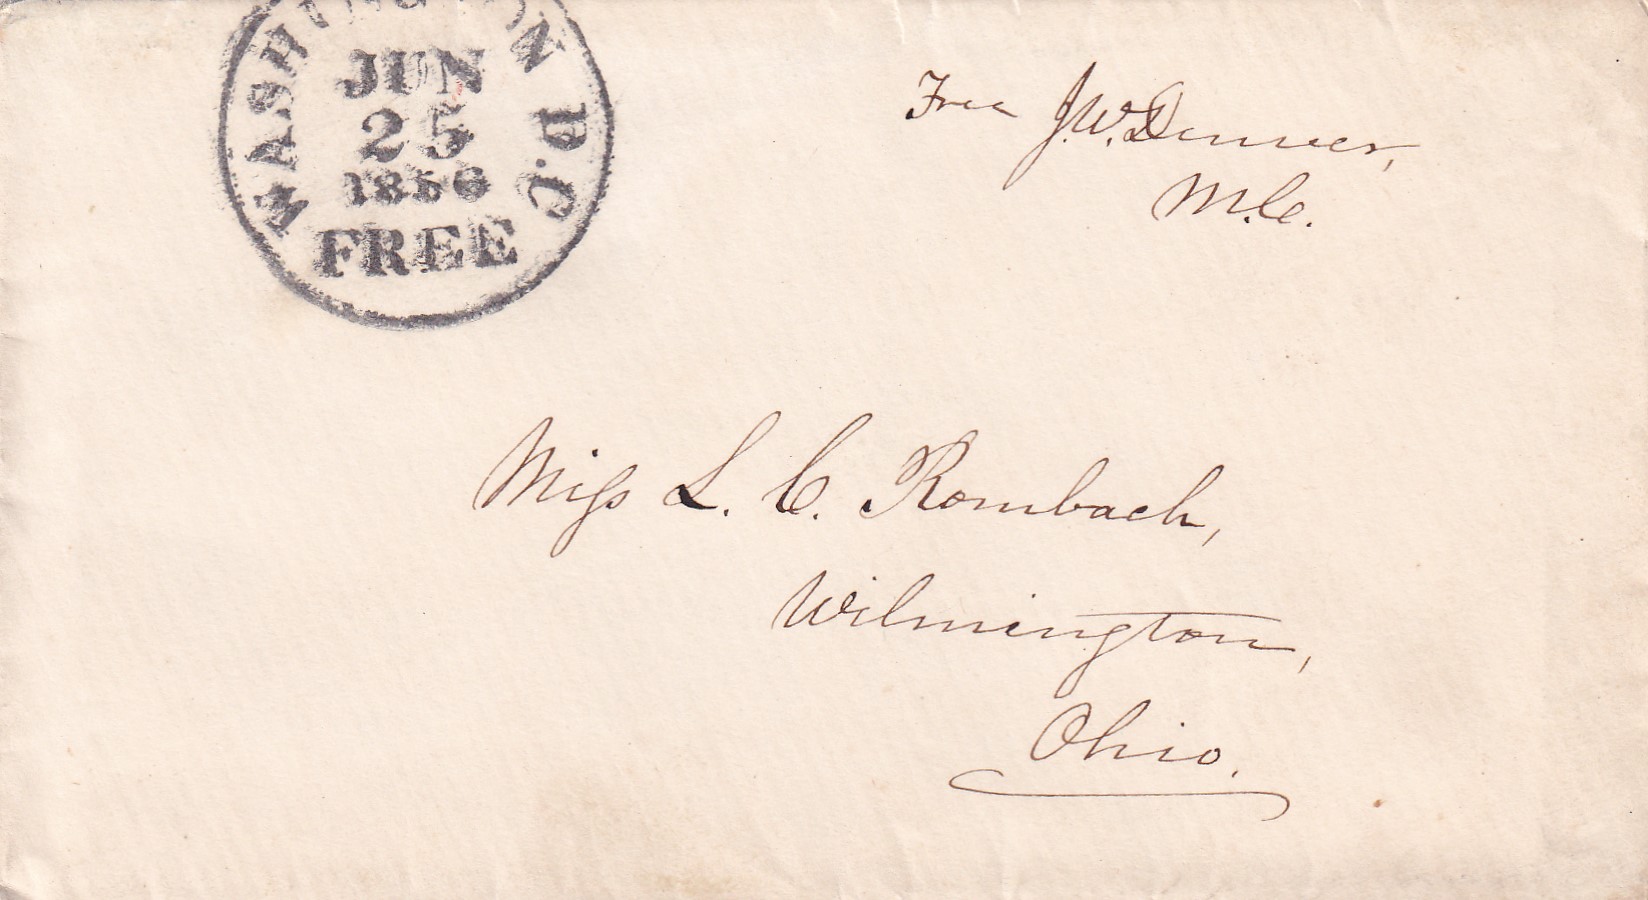 WASHINGTON D.C
JUN
25
1856
FREE
Free J.W. Denver,
M.C.
Miss L. C. Rombach,
Wilmington,
Ohio.